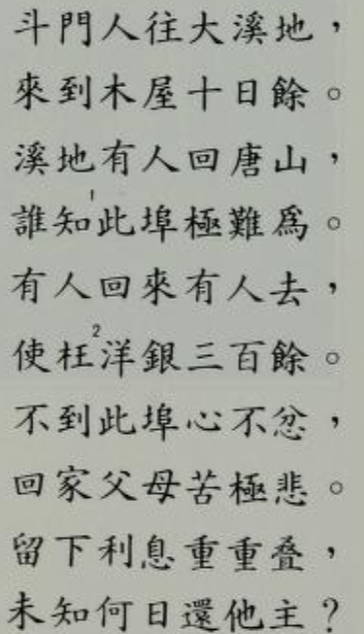 斗門人往大溪地，
來到木屋十日餘。
溪地有人回唐山，
誰知1此埠極難爲。
有人回來有人去，
使枉2洋銀三百餘。
不到此埠心不忿，
回家父母苦極悲。
留下利息重重叠，
未知何日還他主？